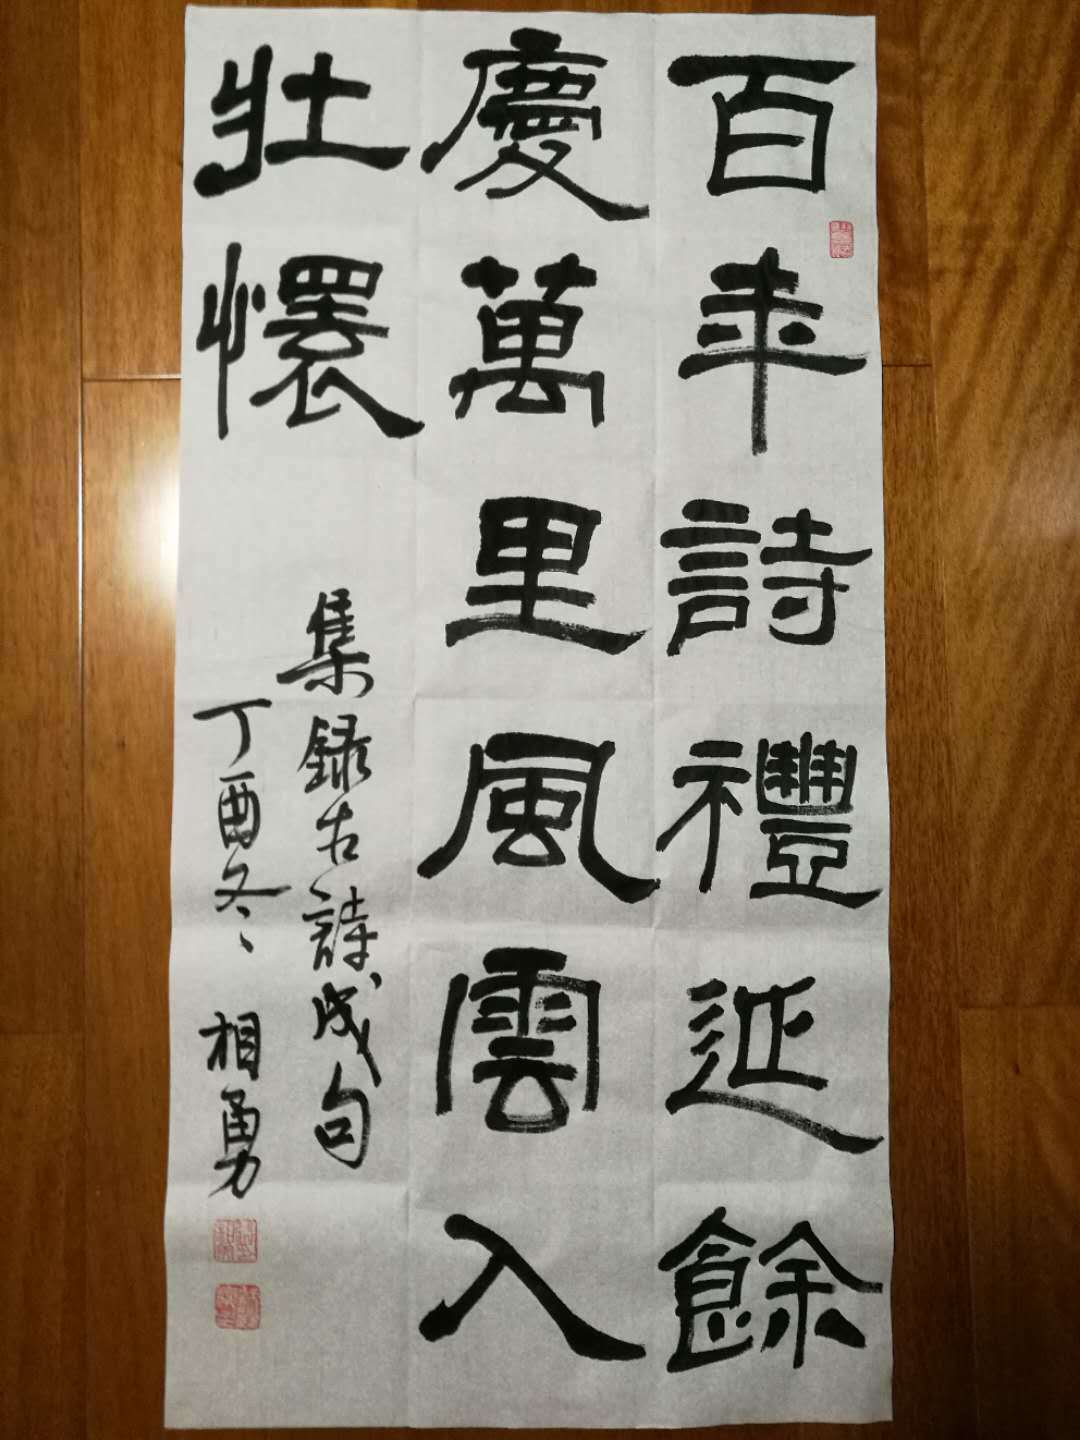 百年詩禮延餘
慶萬里風雲入
壯懷
集録古詩成句
丁酉冬、相勇